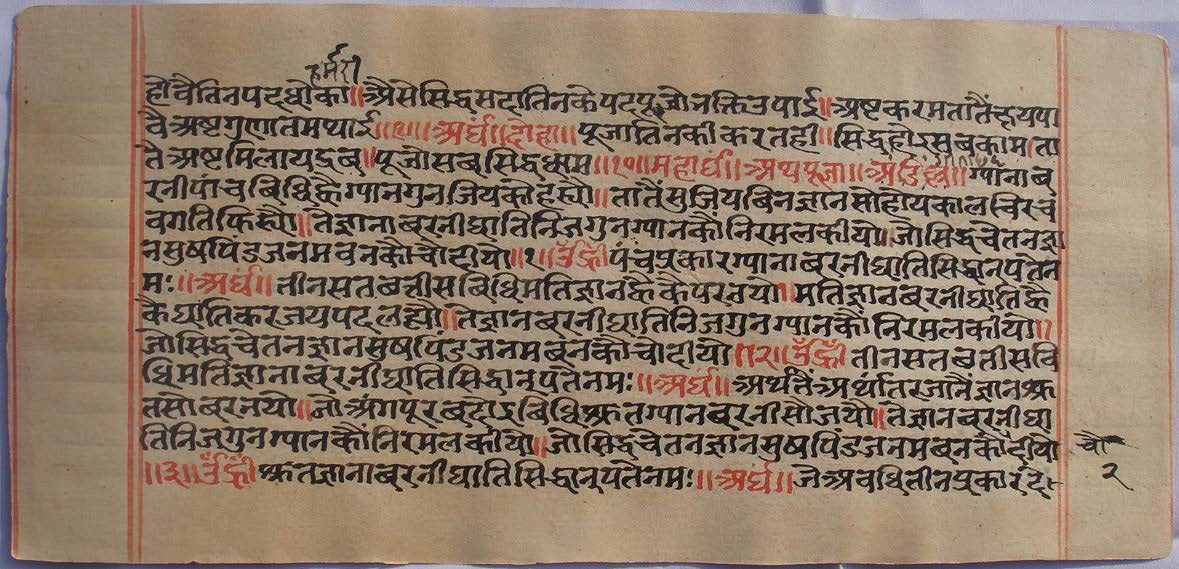 हौवैतिनपदधौका॥अैसेसिद्धसदातिनकेपदपूजौभक्तिउपाई॥अष्टकरमता
वैअष्टगुणातमथाई॥९॥अर्घं॥दोहा॥पूजातिनकीकरतही॥सिद्धहोइसबकाम॥ता
तैअष्टमिलायद्रब॥पूजौसबसिद्धधाम॥१०॥महार्घं॥अथपूजा॥ग्यानाब
रनीपांचबिधिकैग्यानगुनजियकौहस्यो॥तातैंसुजियबिनज्ञानसोहोयकालचिरच
वगतिफिस्यो॥तेज्ञानाबरनीघातिनिजगुनग्यानकौंनिरमलकीयो॥जौसिद्धचेतनज्ञा
नमुषपिंडजनमबनकौचोदीयो॥१॥उँह्रीँपंचप्रकारग्यानाबरनीघातिसिद्धानपतेन
मः॥अर्घं॥तीनसतबत्रीसबिधिमतिज्ञानकैकैपरनयो॥मतिज्ञानबरनीघातिकै
कैघातिकरजयपदलह्यो॥तेज्ञानबरनीघातिनिजगुनग्यानकौंनिरमलकीयो॥
जौसिद्धचेतनज्ञानमुषपिंडजनमबनकौचोदीयो॥२॥उँह्रीँतीनसतबतीसबि
धिमतिज्ञानाबरनीघातिसिद्धानपतेनमः॥अर्घं॥अर्थतैंअर्थांतरजानैज्ञानश्रु
तसोबरनयो॥जौअंगपूरबदोइबिधिश्रुतग्यानबरनीसौजयो॥तेज्ञानबरनीघा
तिनिजगुनग्यानकौंनिरमलकीयो॥जौसिद्धचेतनज्ञानमुषपिंडजनमबनकौदीयो
॥३॥उँह्रीँश्रुतज्ञानाबरनीघातिसिद्धानपतेनमः॥अर्घं॥जैअवधितीनप्रकार
चौ
२